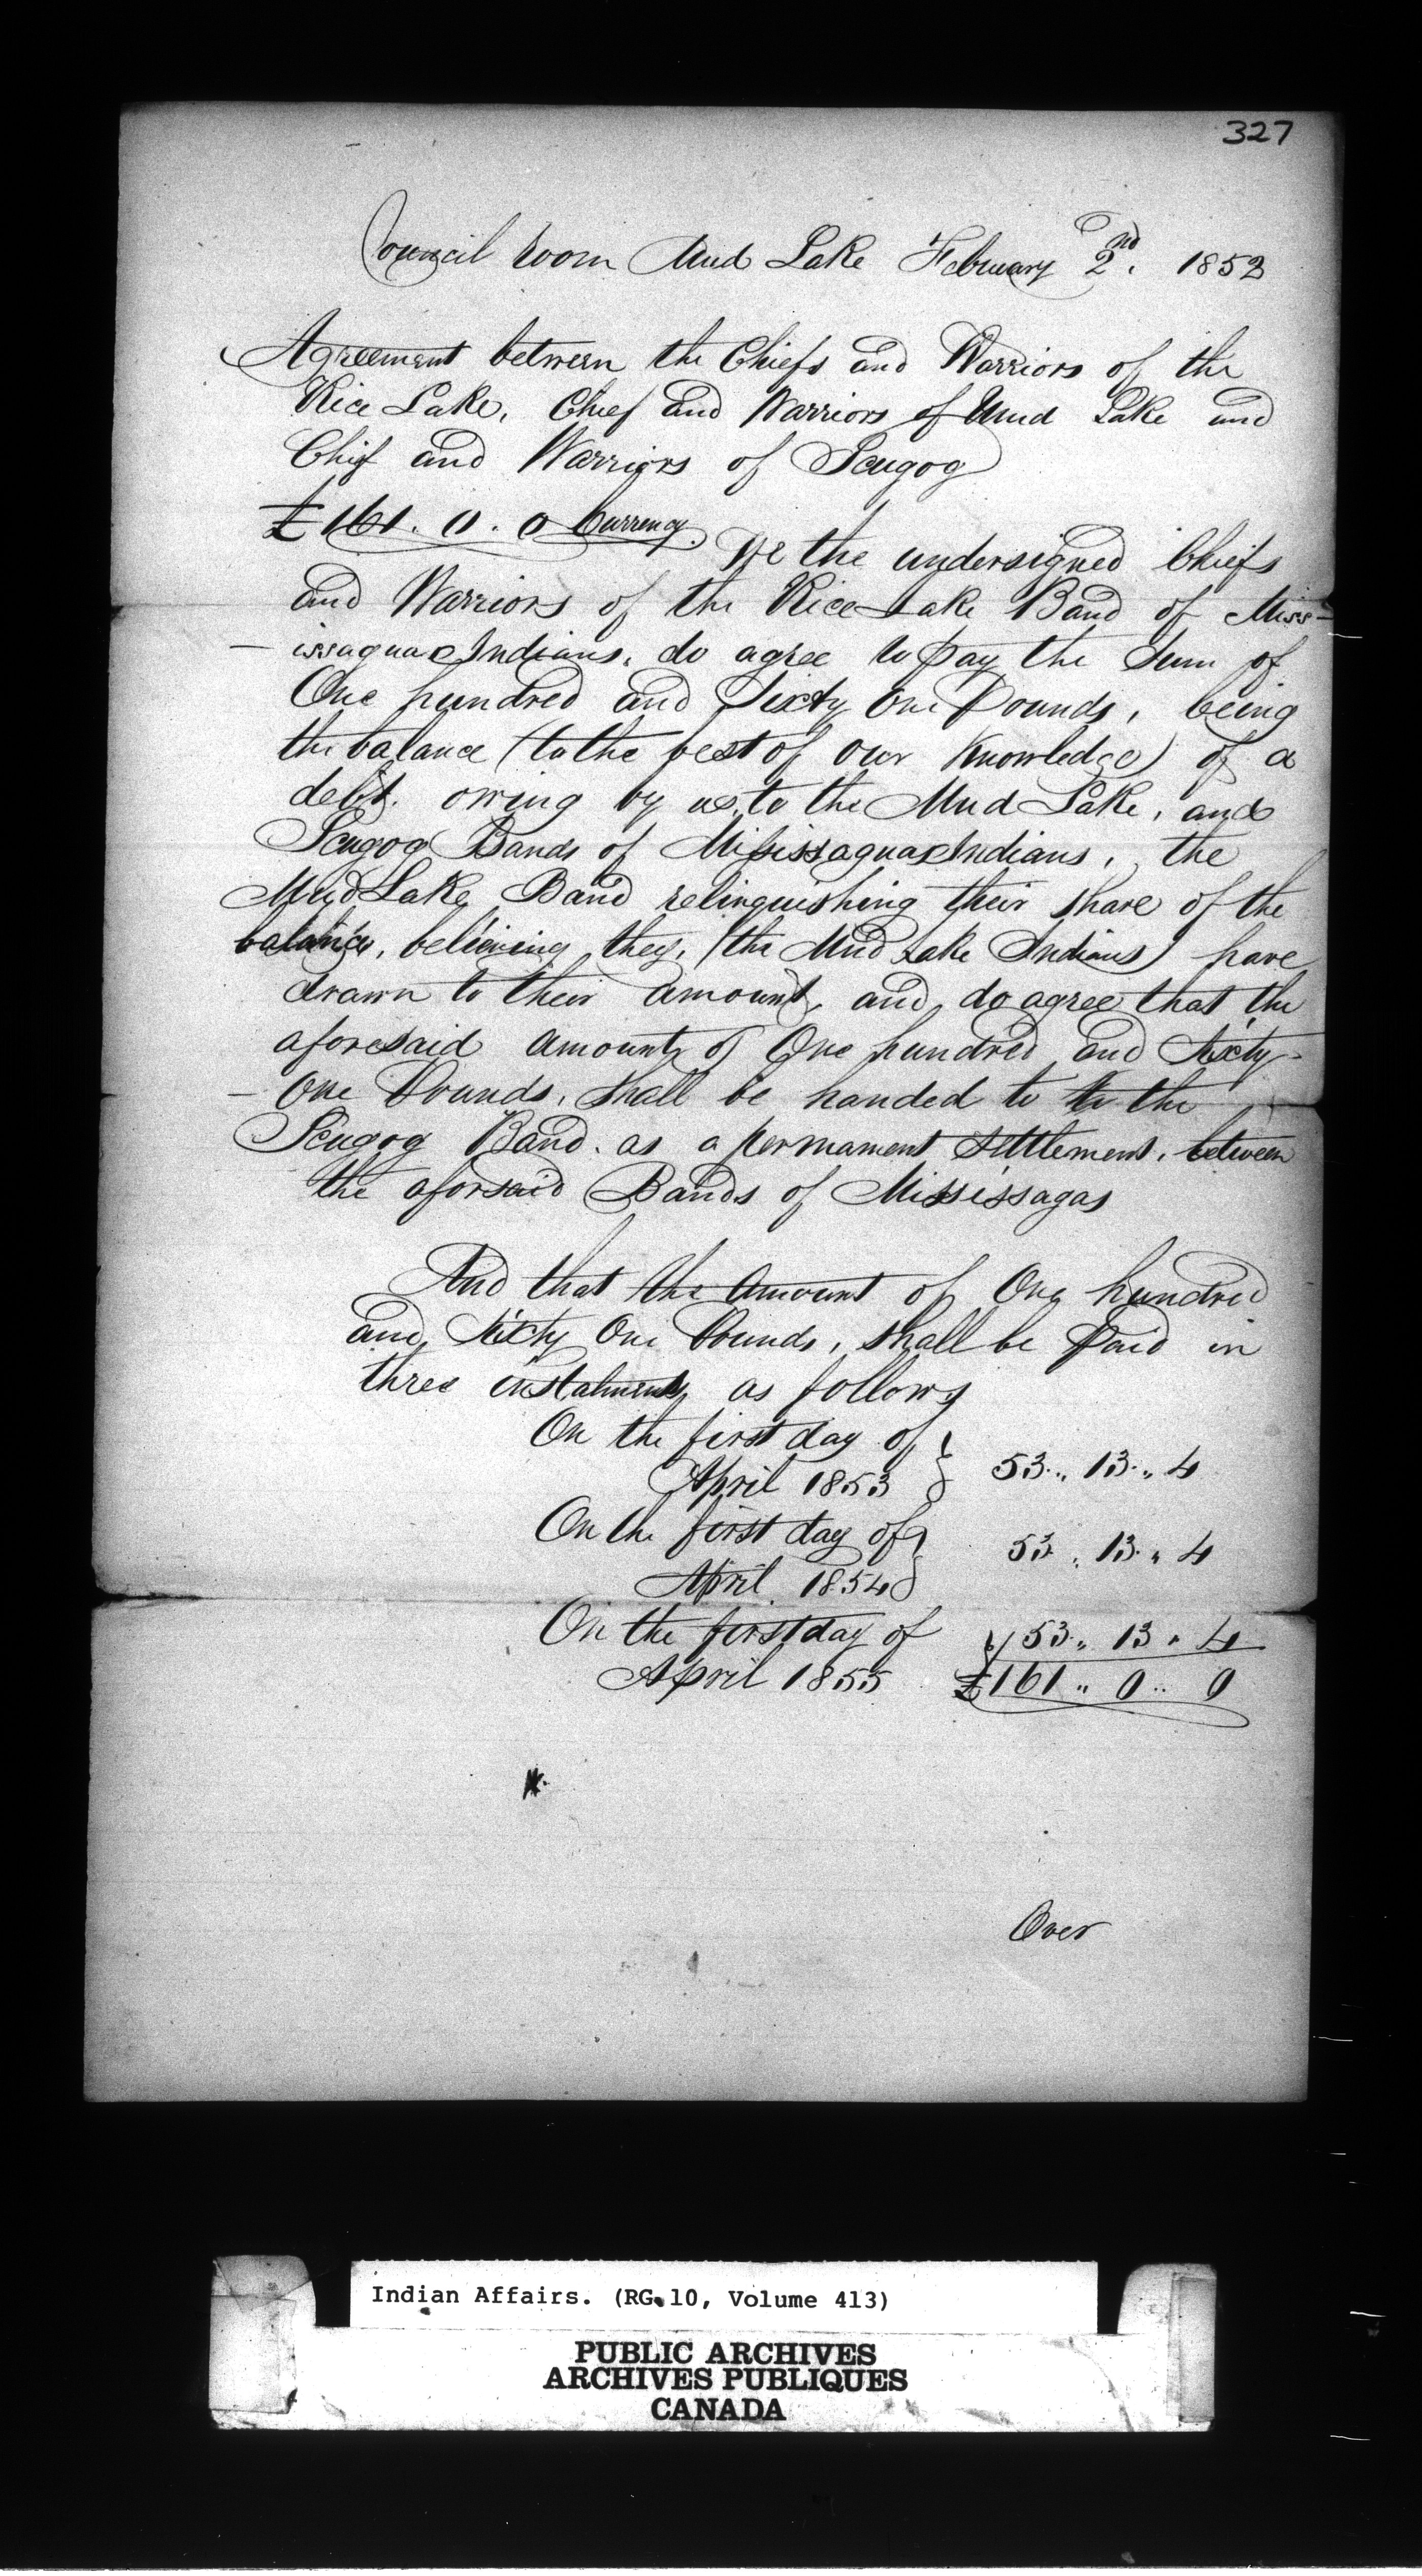 327
Council Room Mud Lake February 2nd. 1852
Agreement between the Chiefs and Warriors of the
Rice Lake, Chief and Warriors of Mud Lake and
Chief and Warriors of Scugog
£161. 0. 0 Currency.
We the undersigned Chiefs
and Warriors of the Rice Lake Band of Miss-
- issaguas Indians, do agree to pay the Sum of
One hundred and Sixty One Pounds, being
the balance (to the best of our Knowledge) of a
debt. owing by us, to the Mud Lake, and
Scugog Bands of Missisaguas Indians, the
Mud Lake Band relinquishing their share of the
balance, believing they, (the Mud Lake Indians) have
drawn to their amount, and do agree that the
aforesaid amount of One hundred and Sixty-
- One Pounds, shall be handed to to the
Scugog Band. as a permament Settlement, between
the aforsaid Bands of Mississagas
And that the Amount of One hundred
and, Sixty One Pounds, shall be Paid in
three instalments as follows
On the first day of } 53 " 13 " 4
April 1853
On the first day of } 53 " 13 " 4
April 1854
On the first day of } 53 " 13 " 4
April 1855 £161 " 0 " 0
Over
Indian Affairs. (RG 10, Volume 413)
PUBLIC ARCHIVES
ARCHIVES PUBLIQUES
CANADA